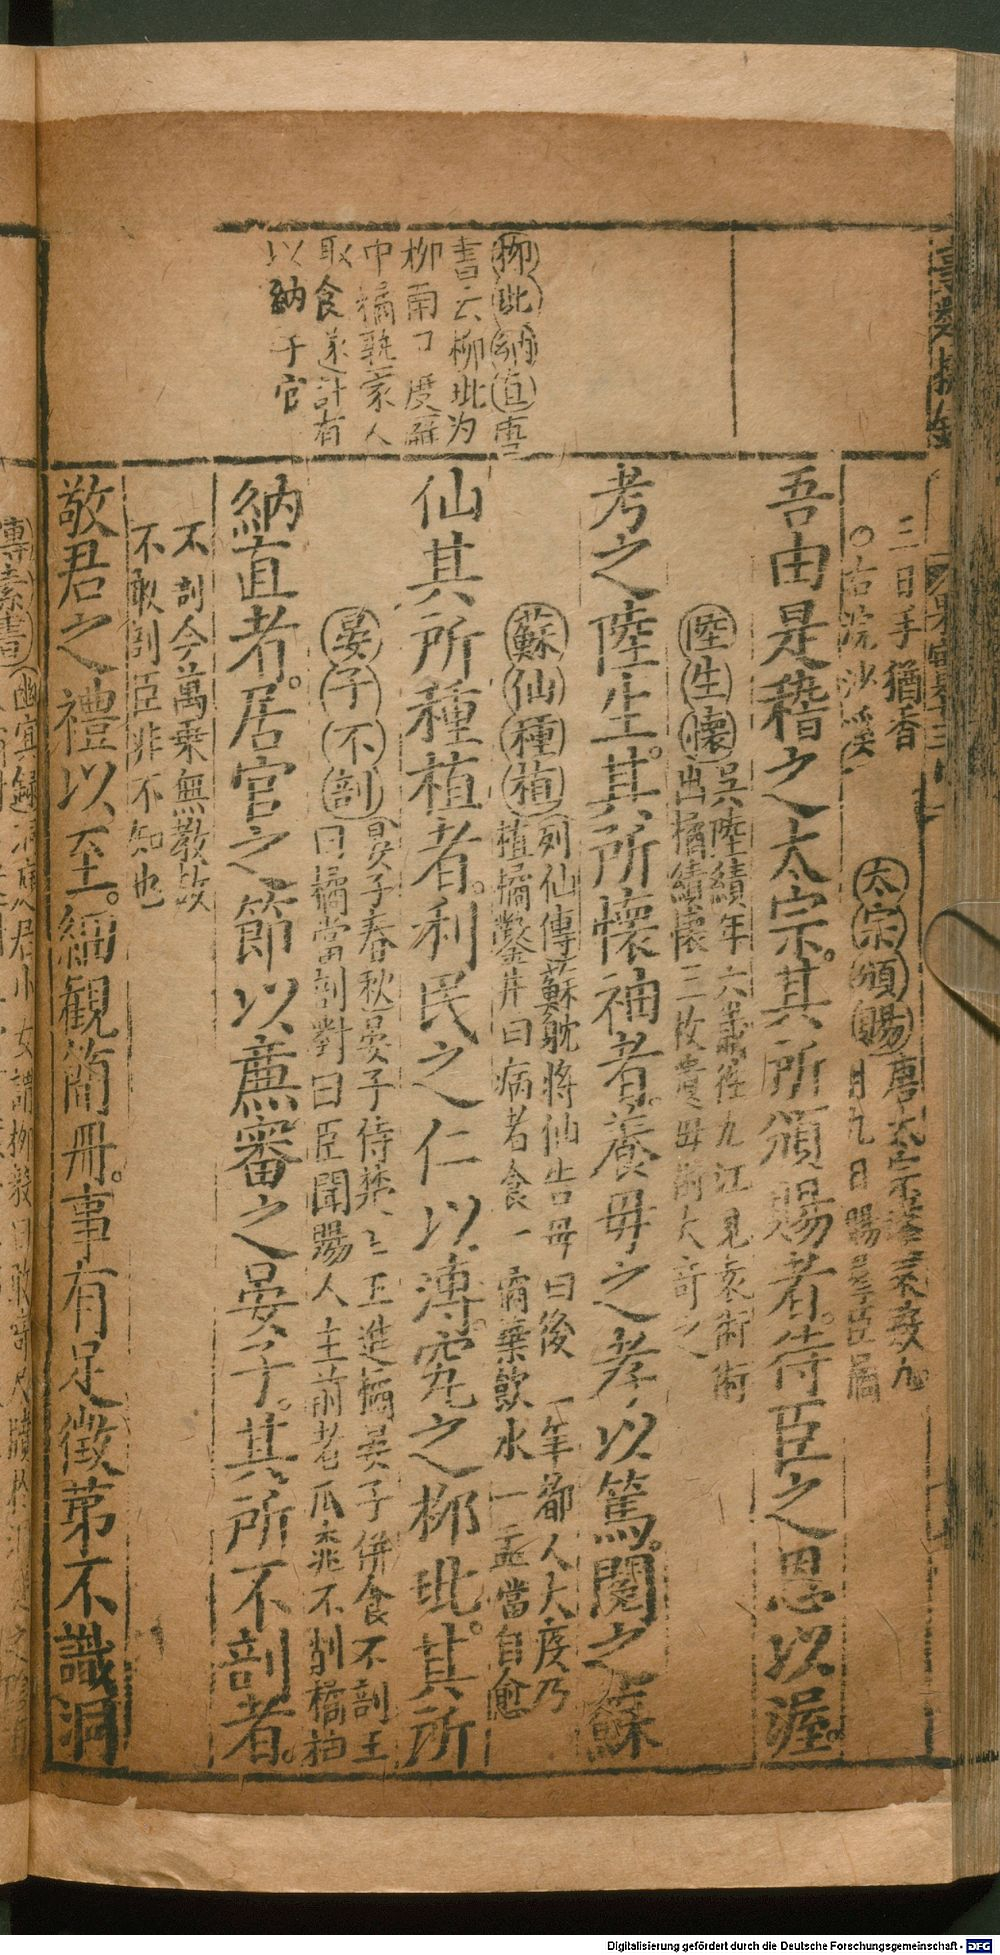 三日手猶香
○右浣沙溪
太宗頒賜 唐太宗
月九日賜羣臣橘
吾由是稽之太宗。其所頒賜者。侍臣之恩以渥。
陸生懷 吳陸績年六歲在九江見袁術術
出橘績懷三枚遺母術大奇之
考之陸生。其所懷袖者。養毋之孝以篤。閱之蘇
蘇仙種植 列仙傳蘇耽將仙告毋曰後一年郡人大疫乃
植橘鑿井曰病者食一 葉飲水一盂當自愈
仙其所種植者。利民之仁以溥。究之柳玭。其所
柳玭納直 唐
書云柳玭为
柳 度
中橘熟家人
取食遂計有
以納子官
納直者。居官之節以廉。審之晏子。其所不剖者。
晏子不剖 晏子春秋晏子侍楚王王進橘晏子併食不剖王
曰橘當剖對曰臣聞賜人主前者瓜桃不削橘柚
不剖今萬乘無教故
不敢剖臣非不知也
敬君之禮以至。細觀簡冊。事有足徵第不識洞
傳素書 幽宜歸洞庭君小女謂柳毅曰敢寄尺牘
Digitalisierung gefördert durch die Deutsche Forschungsgemeinschaft - DFG